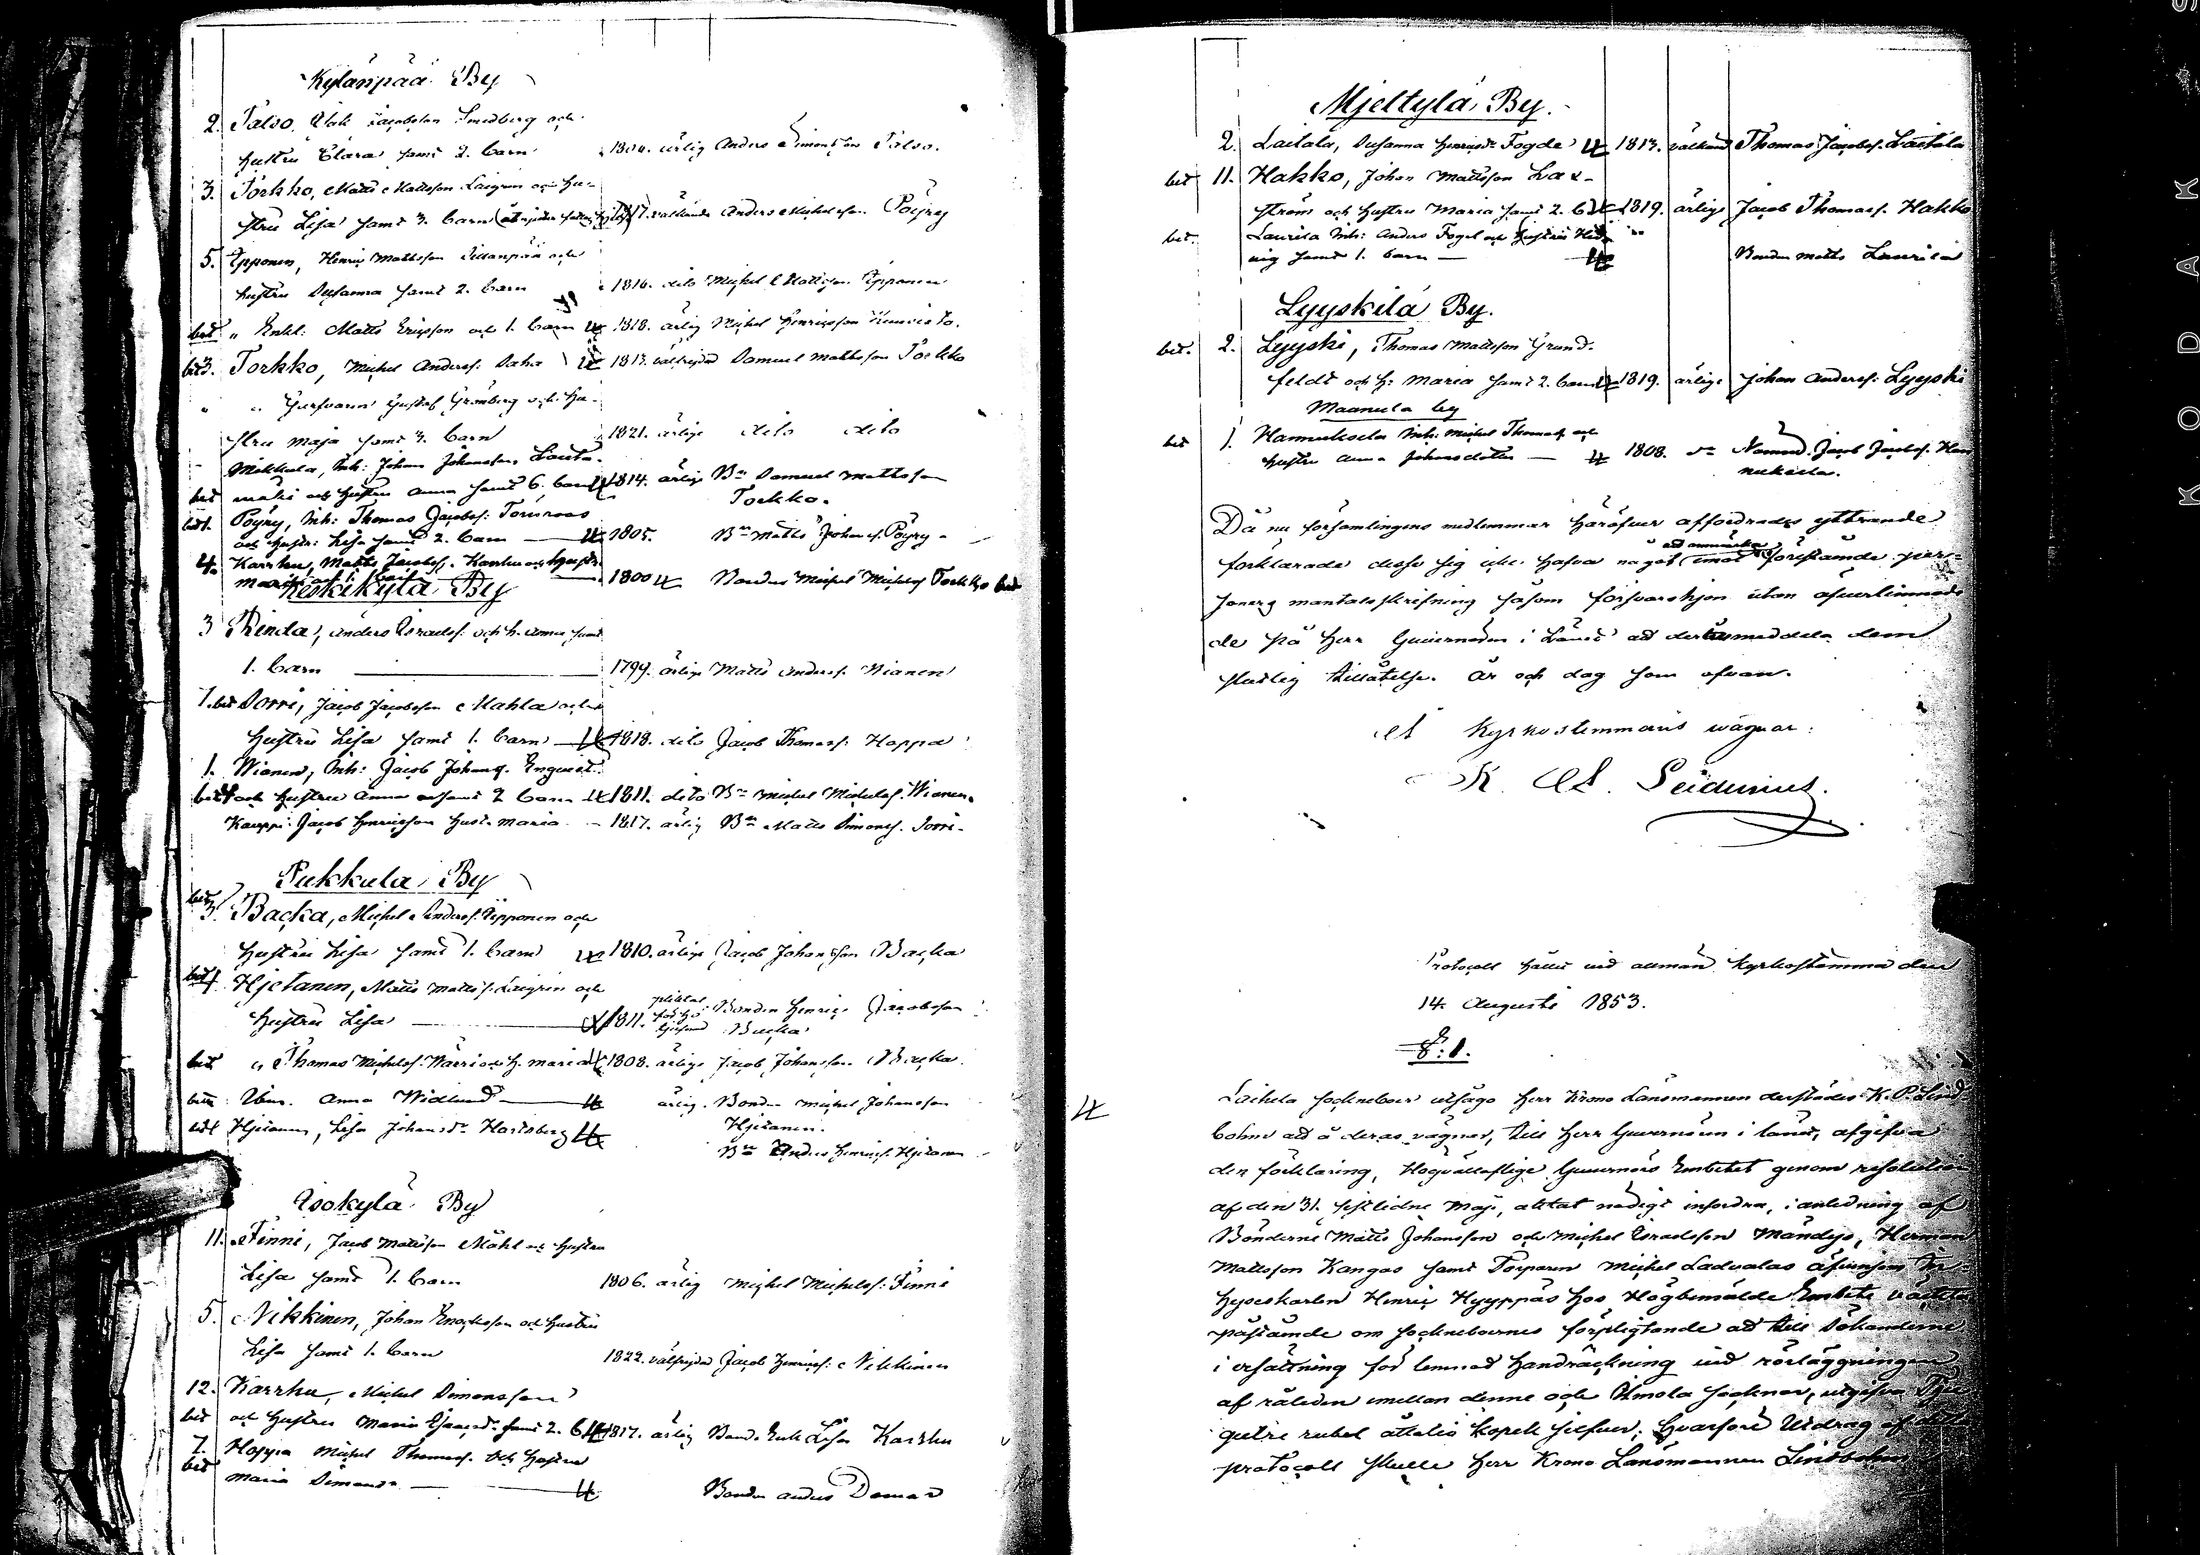 Kylänpää By
2. Talso, Isak Jacobsson Smedberg och
hustru Clara samt 2. barn 1804. ärlig Anders Simonsson Talso.
3. Torkko, Matts Mattsson Laigren och hu-
stru Lisa samt 3. barn 1817. välkände Anders Michelsson Pöyry
5. Epponen, Henric Mattsson Sillanpää och
hustru Susanna samt 2. barn 1816. dito Michel Mattsson Epponen
bet " Enkl: Matts Ericsson och 1. barn 1818. ärlig Michel Henricsson
bet 3. Torkko, Michel Anderss. Saha 1813. välfrejdad Samuel Mattsson Torkko
" " Gustaf Grönberg och hu-
stru Maja samt 3. barn 1821. ärlige dito dito
Mikkula, Inh: Johan Johansson Lauta-
bet mäki och hustru Anna samt 6. barn 1814. ärlige Bn Samuel Mattsson
Torkko.
bet 1. Pöyry, Inh: Thomas Jacobss:
och hustr: Lisa samt 2. barn 1805. Bn Matts Johanss. Pöyry
4. Karrhu, Matts Jacobss. Karrhu och hustr:
Maria och 1. barn 1800 Bonden Michel Michelss Torkko bet
Keskikylä By
3 Rinda, Anders Israelss. och h. Anna samt
1. barn 1799. ärlige Matts Anderss. Wianen
7. bet Sorri, Jacob Jacobsson Mahla och
hustru Lisa samt 1. barn 1818. dito Jacob Thomass: Hoppa
1. Wianen, Inh: Jacob Johanss. Enqvist
bet och hustru Anna samt 2 barn 1811. dito Bn Michel Michelss. Wianen.
Kauppi: Jacob Henricsson hust. Maria 1817. ärlig Bn Matts Simonss. Sorri.
Pukkula By
bet 3. Backa, Michel Anderss. Epponen och
hustru Lisa samt 1. barn 1810. ärlige Jacob Johansson Backa
bet 4. Hjetanen, Matts Mattss. Laigren och
hustru Lisa 1811. Bonden Henric Jacobsson
Backa
bet " Thomas Michelss. Wärri och h. Maria 1808. ärlige Jacob Johansson Backa.
bet Anna Widlund ärlig. Bonden Michel Johansson
Hjetanen.
bet Hjetanen, Lisa Johansdr Hartsberg
Bn Anders Henricss. Hjetanen
Isokylä By
11. Finni, Jacob Mattsson Mähl och hustru
Lisa samt 1. barn 1806. ärlig Michel Michelss: Finni
5. Nikkinen, Johan Enochsson och hustru
Lisa samt 1. barn 1822. välfrejdad Jacob Henricss: Nikkinen
12. Karrhu, Michel Simonsson
bet och hustru Maria samt 2. b 1817. ärlig Bond. Enk. Lisa Karrhu
7. Hoppa Michel Thomass. och hustru
bet Maria Simonsdr Bonden Anders Domar
Mjeltylä By.
2. Laitala, Susanna Henricsdr Fogde 1813. välkänd Thomas Jacobss. Laitala
bet 11. Hakko, Johan Mattsson Lax-
ström och hustru Maria samt 2. b 1819. ärlige Jacob Thomass. Hakko
bet. Laurila Inh: Anders Fogel och hustru Hed-
vig samt 1. barn Bonden Matts Laurila
Lyyskilä By.
bet. 2. Lyyski, Thomas Mattsson Grund-
feldt och h: Maria samt 2. barn 1819. ärlige Johan Anderss: Lyyski
Maanula by
bet 1. Hannuksela Inh: Michel Thomass. och
hustru Anna Johansdotter 1808. Nämnd. Jacob Jacobss. Han
nuksela.
Då nu församlingens medlemmar häröfver affordrades yttrande
förklarade desse sig icke hafva något att anmärka emot förestående per-
soners mantalsskrifning såsom försvarshjon utan öfverlemnade
de på Herr Guvernören i Länet att derå meddela dem
slutlig tillåtelse. År och dag som ofvan.
På Kyrkostemmans wägnar:
K. A. Peidenius.
Protocoll hållit vid allmän Kyrkostämma den
14. Augusti 1853.
§: 1.
Laihela Socknebor utsågo Herr Krono Länsmannen derstädes K. P. Lind-
bohm att å deras vägnar, till Herr Guvernören i länet, afgifva
den förklaring, Högvällofliga Guvernörs Embetet genom resolution
af den 31. sistlidne Maji, aktat nödigt infordra, i anledning af
Bönderne Matts Johansson och Michel Israelsson Mändys, Herman
Mattsson Kangas samt Torparen Michel Ladvalas äfvensom In-
hyseskarlen Henric Hyyppäs hos Högbemälde Embete väckta
påstående om Socknebornes förpligtande att till Sökanderne
i ersättning för lemnad handräckning vid rörläggningen
af rålinien emellan denne och Ilmola Socknar, utgifva Tju-
gutre rubel åttatio kopek silfver; hvarföre Utdrag af detta
protocoll skulle Herr Krono Länsmannen Lindbohm